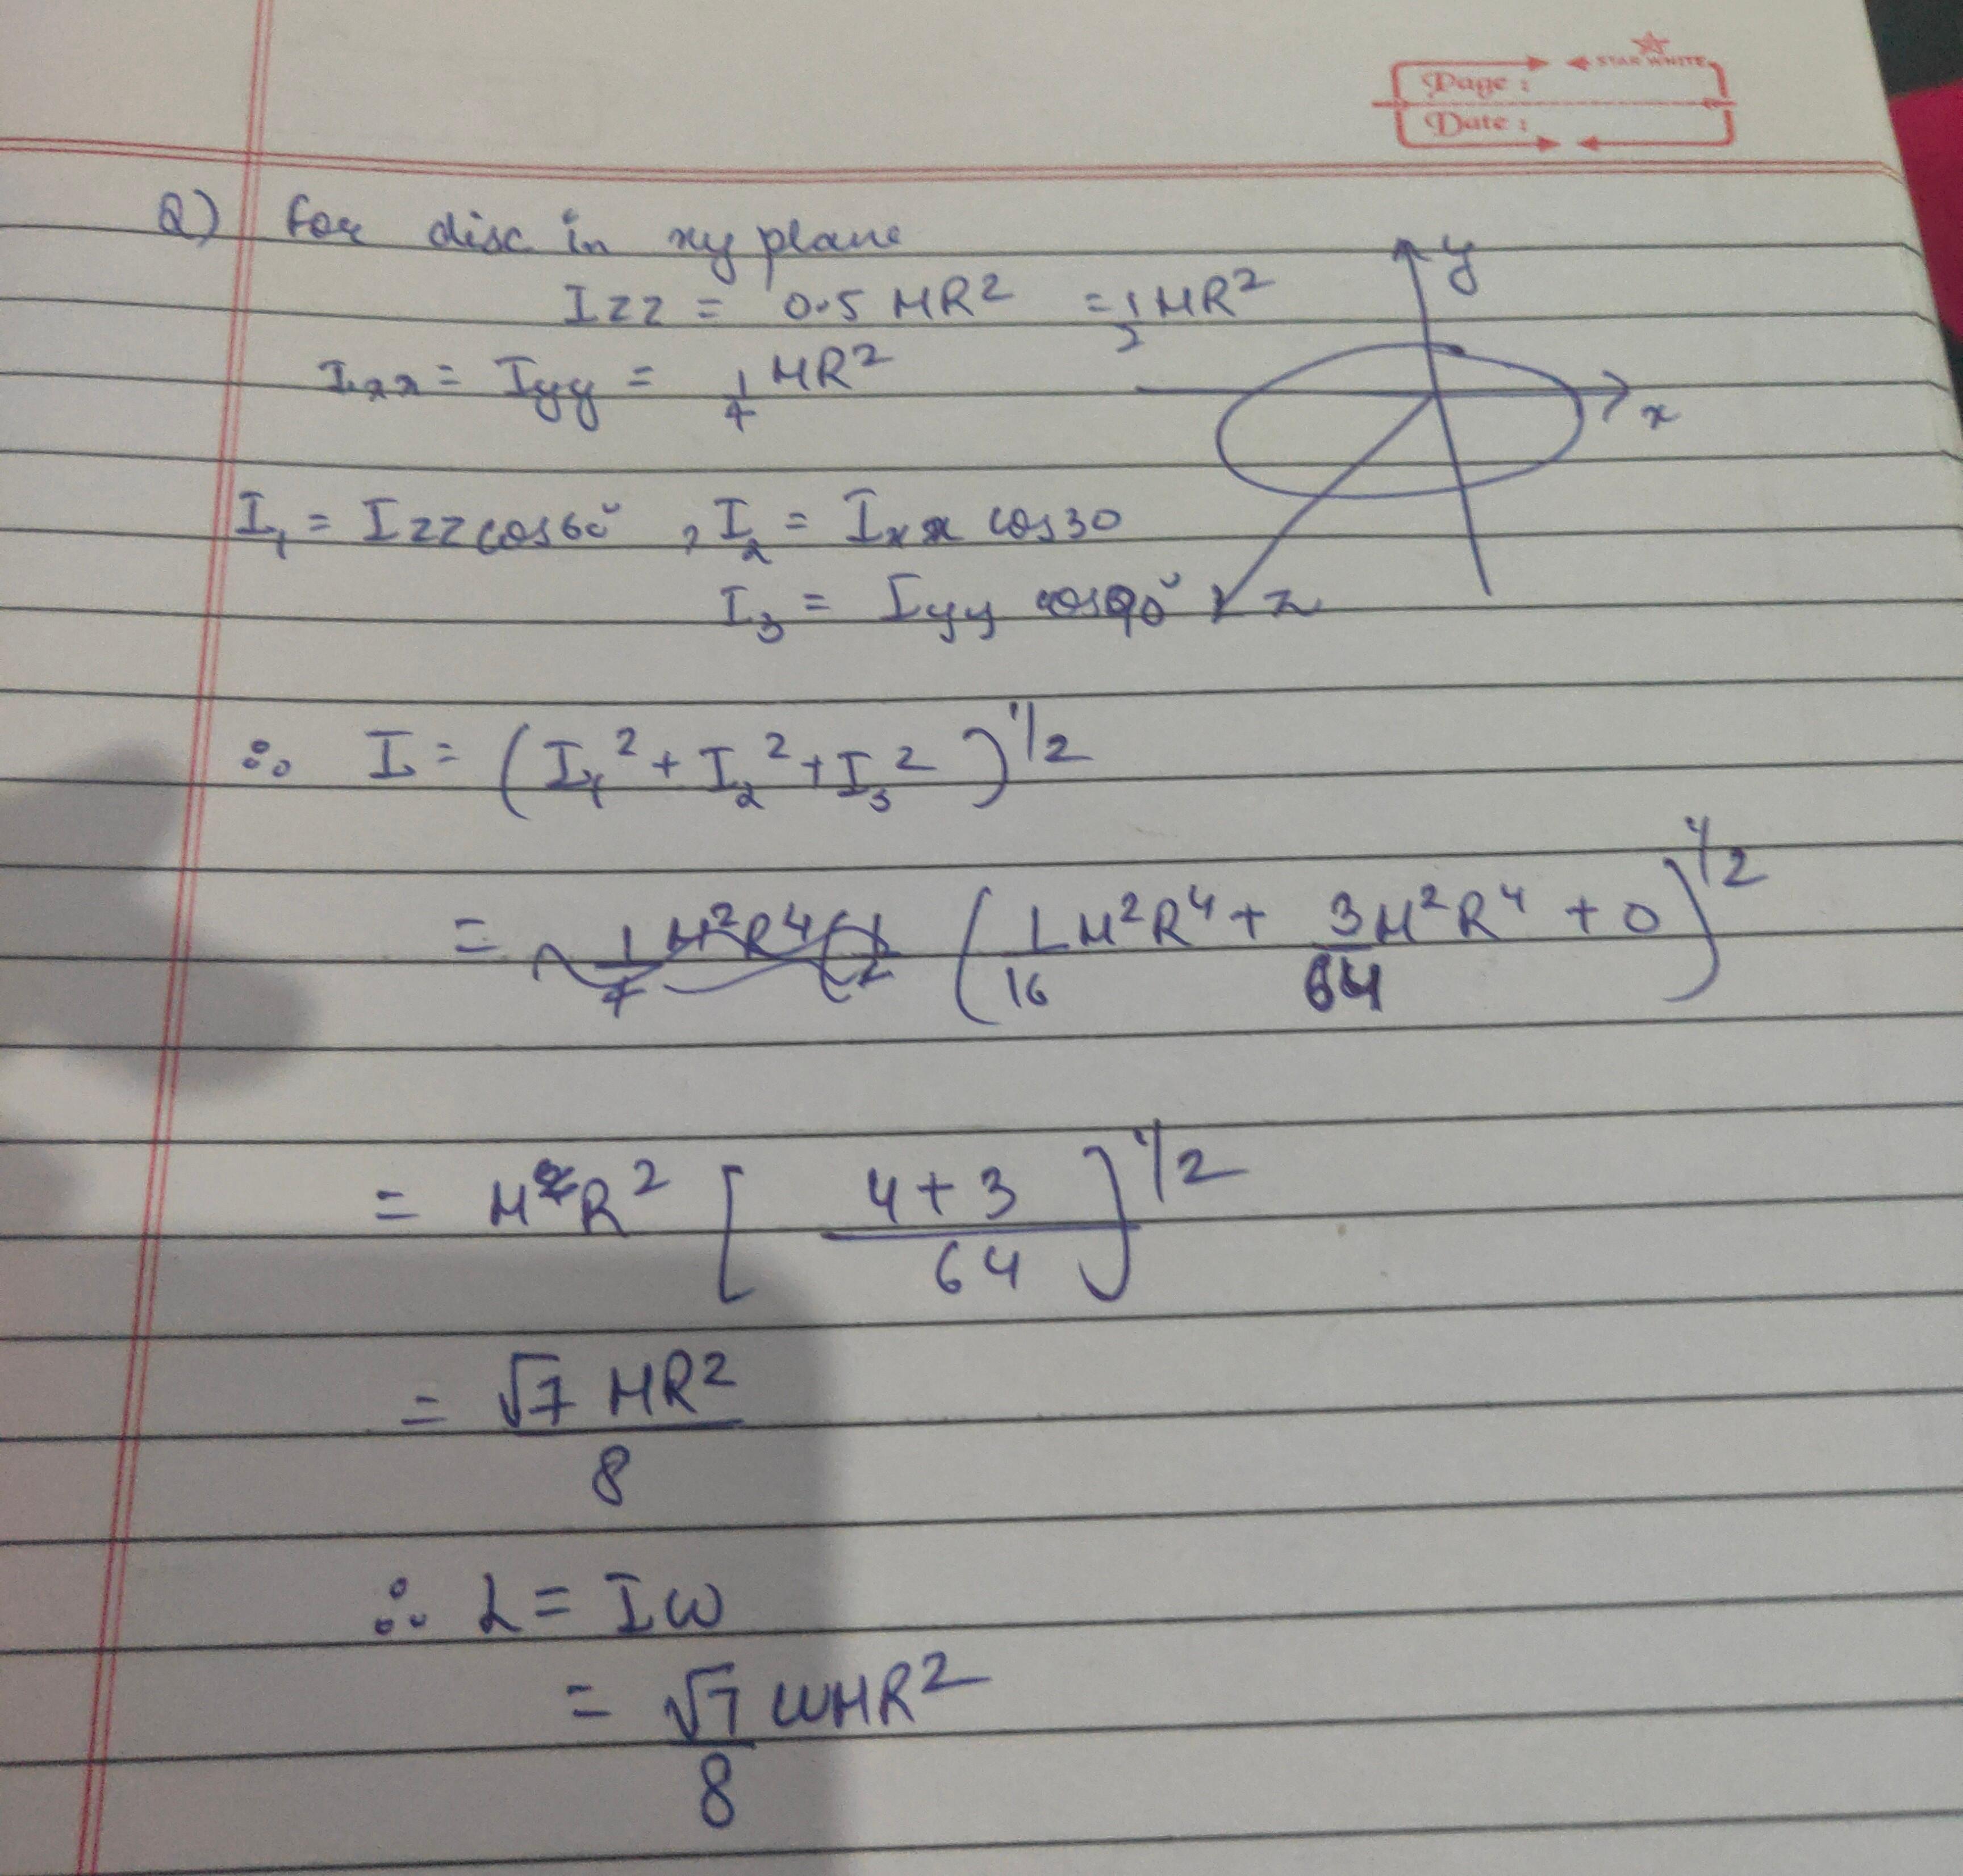 STAR WHITE
Page :
Date :
Q) for disc in xy plane
y
Izz = 0.5 MR² = 1/2 MR²
Ixx = Iyy = 1/4 MR²
x
I₁ = Izz cos60° , I₂ = Ixx cos30
I₃ = Iyy cos90° z
∴ I = (I₁² + I₂² + I₃²)^1/2
= (1/16 M²R⁴ + 3/64 M²R⁴ + 0)^1/2
= MR² [4+3/64]^1/2
= √7 MR²/8
∴ L = Iω
= √7/8 ωMR²